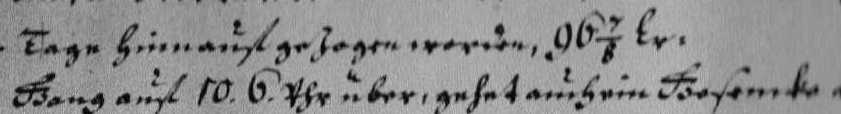 Tage hinnauß gezogen worden, 96 7/8 Lr.
Gang auß 10. 6. Uhr über, gehet auch ein